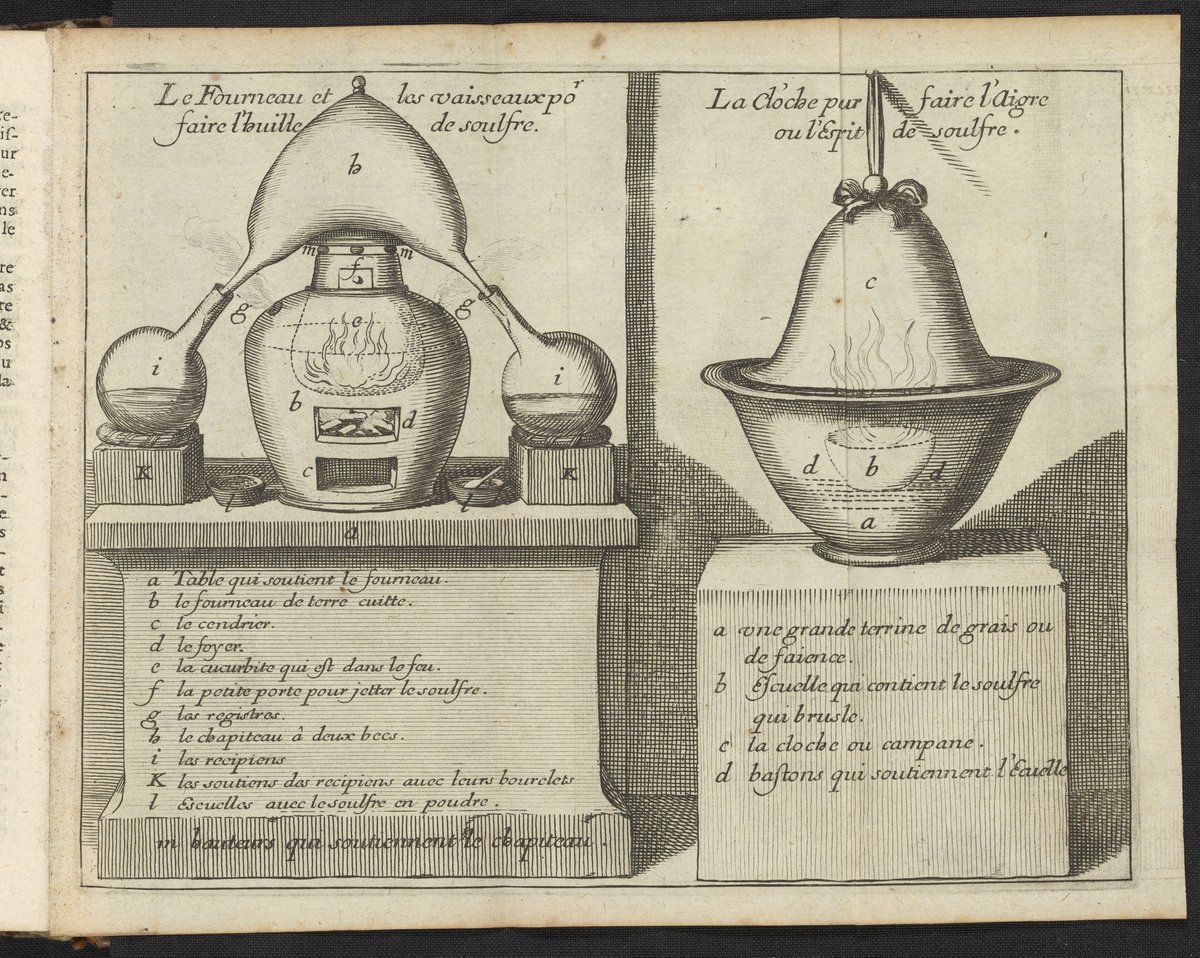 Le Fourneau et les vaisseaux poʳ
faire l'huille de soulfre.
h
m f m
g e g
i i
b d
c
K K
l l
a
a Table qui soutient le fourneau.
b le fourneau de terre cuitte.
c le cendrier.
d le foyer.
e la cucurbite qui est dans le feu.
f la petite porte pour jetter le soulfre.
g les registres.
h le chapiteau â deux becs.
i les recipiens
K les soutiens des recipiens auec leurs bourelets
l Escuelles auec le soulfre en poudre.
m hauteurs qui soutiennent le chapiteau.
La Cloche pur faire l'Aigre
ou l'Esprit de soulfre.
c
d b d
a
a vne grande terrine de grais ou
de faience.
b Escuelle qui contient le soulfre
qui brusle.
c la cloche ou campane.
d bastons qui soutiennent l'Ecuelle